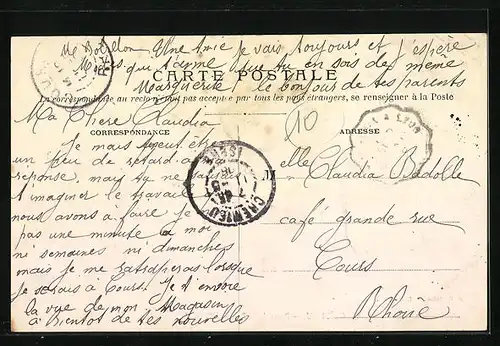 Me Bouillon Une Amie je vais toujours et j'espère
que t'aime que tu en sois des même
Marguerite le bonjour de tes parents
CARTE POSTALE
La correspondance au recto n'est pas acceptée par tous les pays étrangers, se renseigner à la Poste
Ma Chere Claudia
CORRESPONDANCE
ADRESSE
10
Je mais peut être
un peu de retard a
reponse mais tu ne
t imaginer le travail
nous avons a faire je
pas une minute a moi
ni semaines ni dimanches
mais je me ratraperais lorsque
je serais à Cours. Je t envore
la vue de mon Magasin
a Bientot de tes nouvelles
CREMIEU
ISERE
LYON
M
elle Claudia Badolle
café grande rue
Cours
Rhone